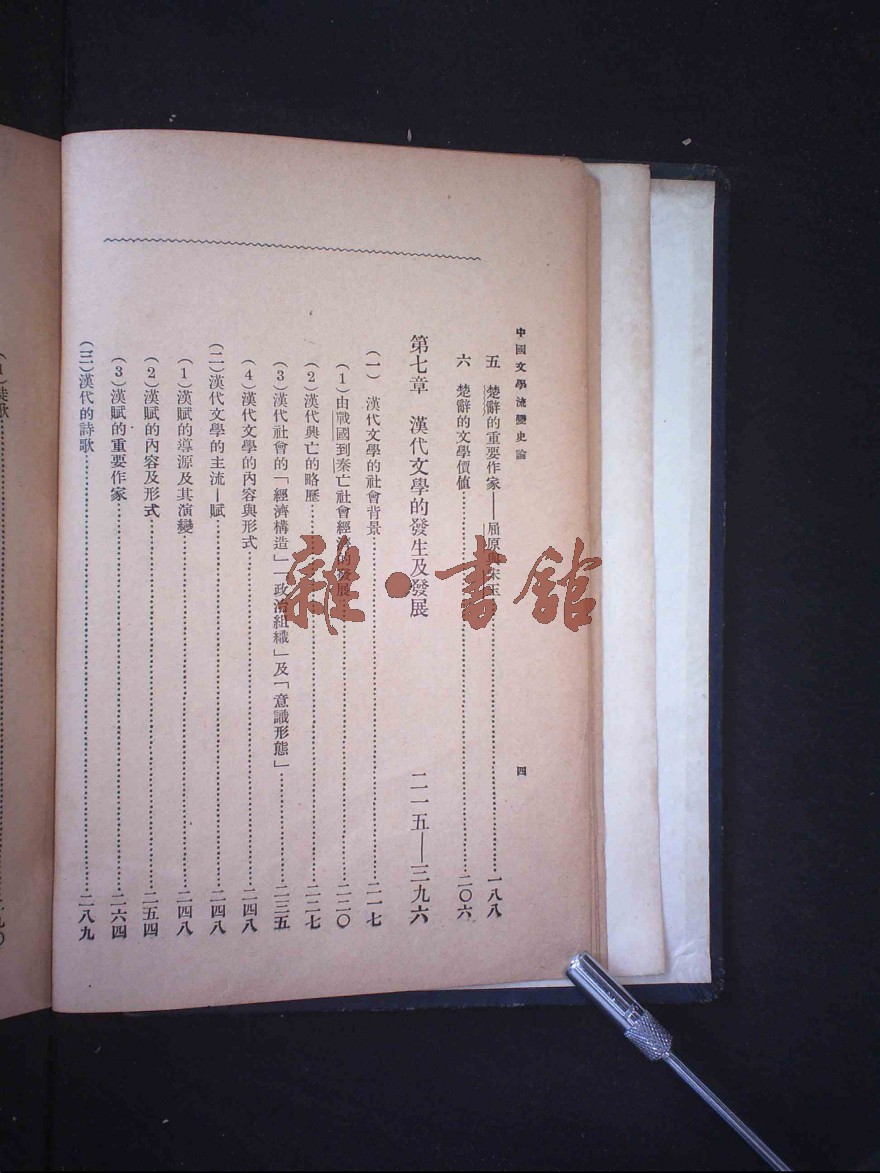 中國文學流變史論
四
五 楚辭的重要作家——屈原與宋玉……一八八
六 楚辭的文學價値……二〇六
第七章 漢代文學的發生及發展 二一五——三九六
(一) 漢代文學的社會背景……二一七
(1)由戰國到秦亡社會經濟的發展……二二〇
(2)漢代興亡的略歷……二二七
(3)漢代社會的「經濟構造」「政治組織」及「意識形態」……二三五
(4)漢代文學的內容與形式……二四八
(二)漢代文學的主流—賦……二四八
(1)漢賦的導源及其演變……二四八
(2)漢賦的內容及形式……二五四
(3)漢賦的重要作家……二六四
(三)漢代的詩歌……二八九
(1)徒歌
雜·書館